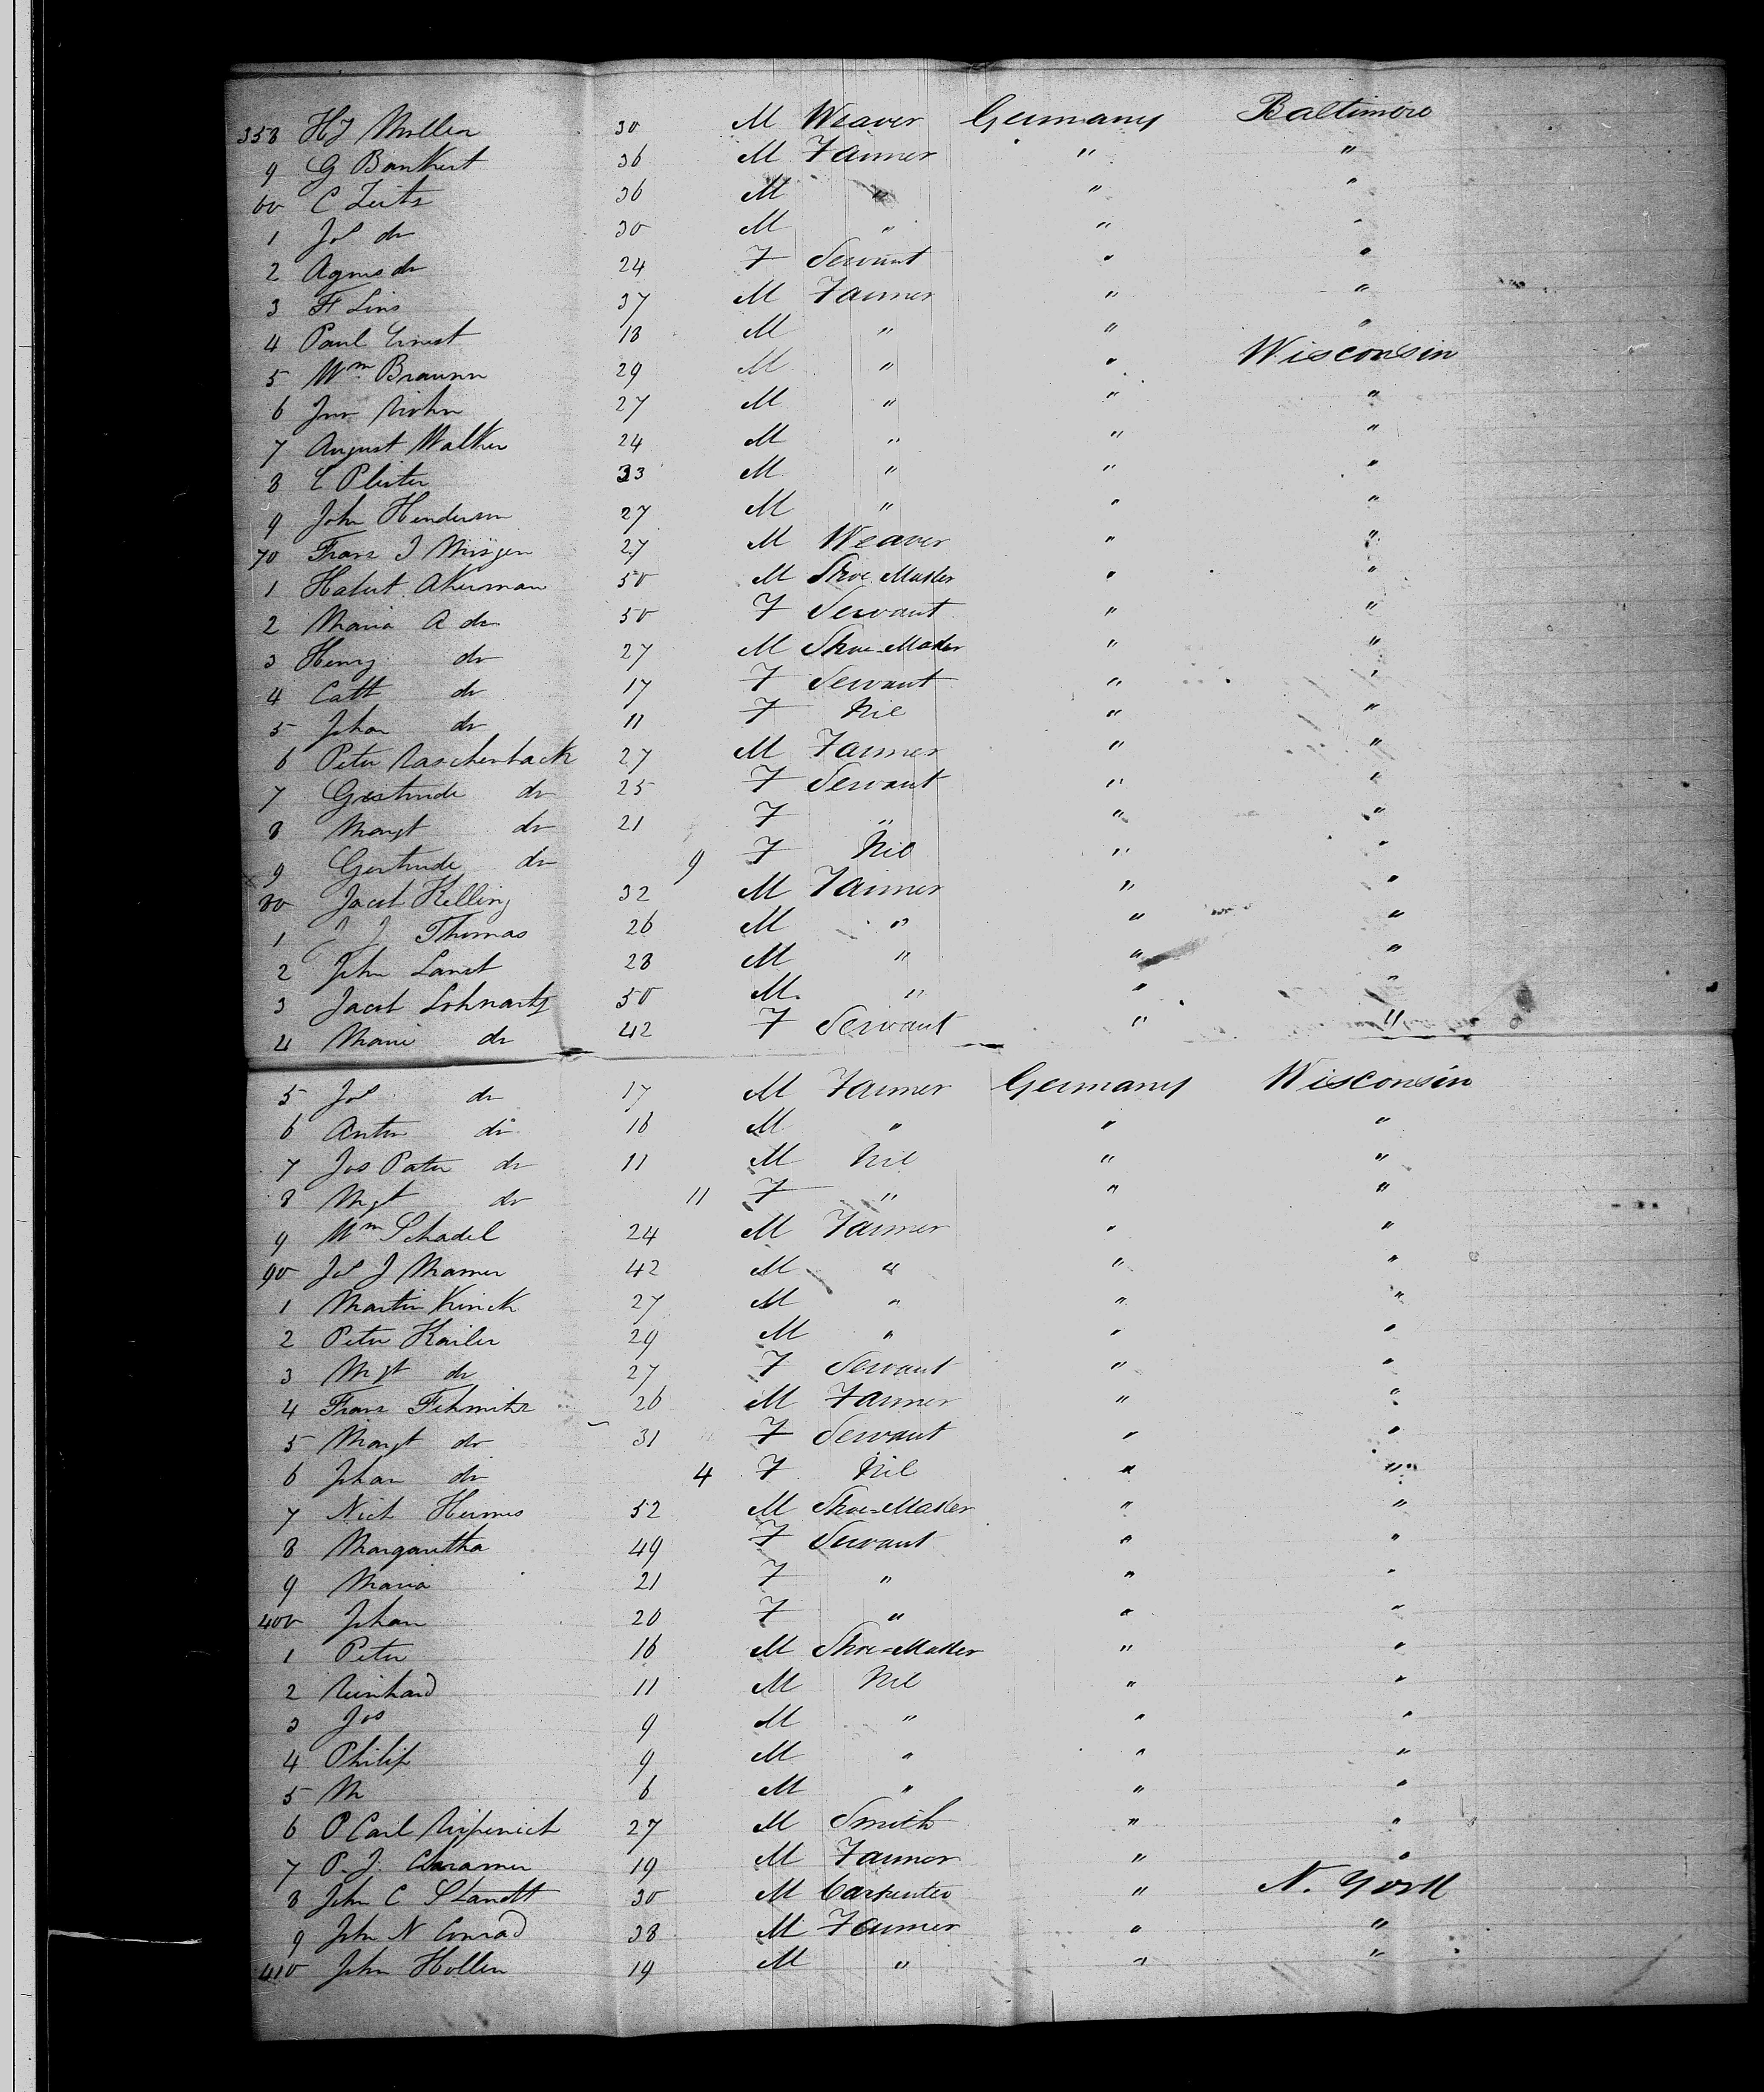 358 HJ Muller 30 M Weaver Germany Baltimore
9 G Bankert 36 M Farmer " "
60 C Zeitz 36 M " " "
1 Jos do 30 M " " "
2 Agnes do 24 F Servant " "
3 F Lins 37 M Farmer " "
4 Paul Ernst 18 M " " "
5 Wm Braunn 29 M " " Wisconsin
6 Jno 27 M " " "
7 August Walker 24 M " " "
8 33 M " " "
9 John Henderson 27 M " " "
70 Franz J 27 M Weaver " "
1 Akerman 50 M Shoe Maker " "
2 Maria A do 50 F Servant " "
3 Henry do 27 M Shoe-Maker " "
4 Cath do 17 F Servant " "
5 Johan do 11 F Nil " "
6 Peter Raschenback 27 M Farmer " "
7 Gestrude do 25 F Servant " "
8 Margt do 21 F " " "
9 Gertrude do 9 F Nil " "
80 Jacob Kelling 32 M Farmer " "
1 J J Thomas 26 M " " "
2 John 28 M " " "
3 Jacob Lohnartz 50 M " " "
4 Marie do 42 F Servant " "
5 Jos do 17 M Farmer Germany Wisconsin
6 Anton do 16 M " " "
7 Jos Peter do 11 M Nil " "
8 Mgt do 11 F " " "
9 Wm Schadel 24 M Farmer " "
90 Jos J Mamer 42 M " " "
1 Martin Kinck 27 M " " "
2 Peter Kailer 29 M " " "
3 Mgt do 27 F Servant " "
4 Franz Fehmitz 26 M Farmer " "
5 Margt do 31 F Servant " "
6 Johan do 4 F Nil " "
7 Nich Hermes 52 M Shoe-Maker " "
8 Margaretha 49 F Servant " "
9 Maria 21 F " " "
400 Johan 20 F " " "
1 Peter 16 M Shoe-Maker " "
2 Reinhard 11 M Nil " "
3 Jos 9 M " " "
4 Philip 9 M " " "
5 M 6 M " " "
6 P Carl 27 M Smith " "
7 P. J. 19 M Farmer " "
8 John C Standt 30 M Carpenter " N. York
9 John N Conrad 38 M Farmer " "
410 John Hollen 19 M " " "